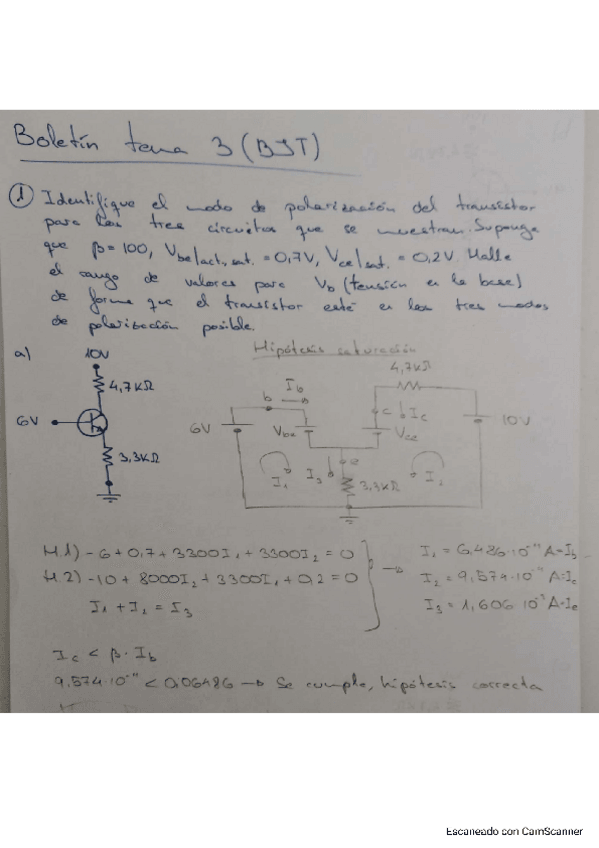 Boletín tema 3 (BJT)
① Identifique el modo de polarización del transistor
para los tres circuitos que se muestran. Suponga
que β=100, Vbe|act,sat. = 0,7V, Vce|sat. = 0,2V. Halle
el rango de valores para Vb (tensión en la base)
de forma que el transistor esté en los tres modos
de polarización posible.
a)
10V
4,7KΩ
6V
3,3KΩ
Hipótesis saturación
4,7KΩ
Ib
b
c
Ic
6V
Vbe
Vce
10V
e
I1
I3
3,3KΩ
M.1) -6+0,7+3300I1+3300I2=0
M.2) -10+8000I2+3300I1+0,2=0
I1+I2=I3
I1=6,486·10⁻⁴ A=Ib
I2=9,574·10⁻⁴ A=Ic
I3=1,606·10⁻³ A=Ie
Ic < β·Ib
9,574·10⁻⁴ < 0,06486 → Se cumple, hipótesis correcta
Escaneado con CamScanner